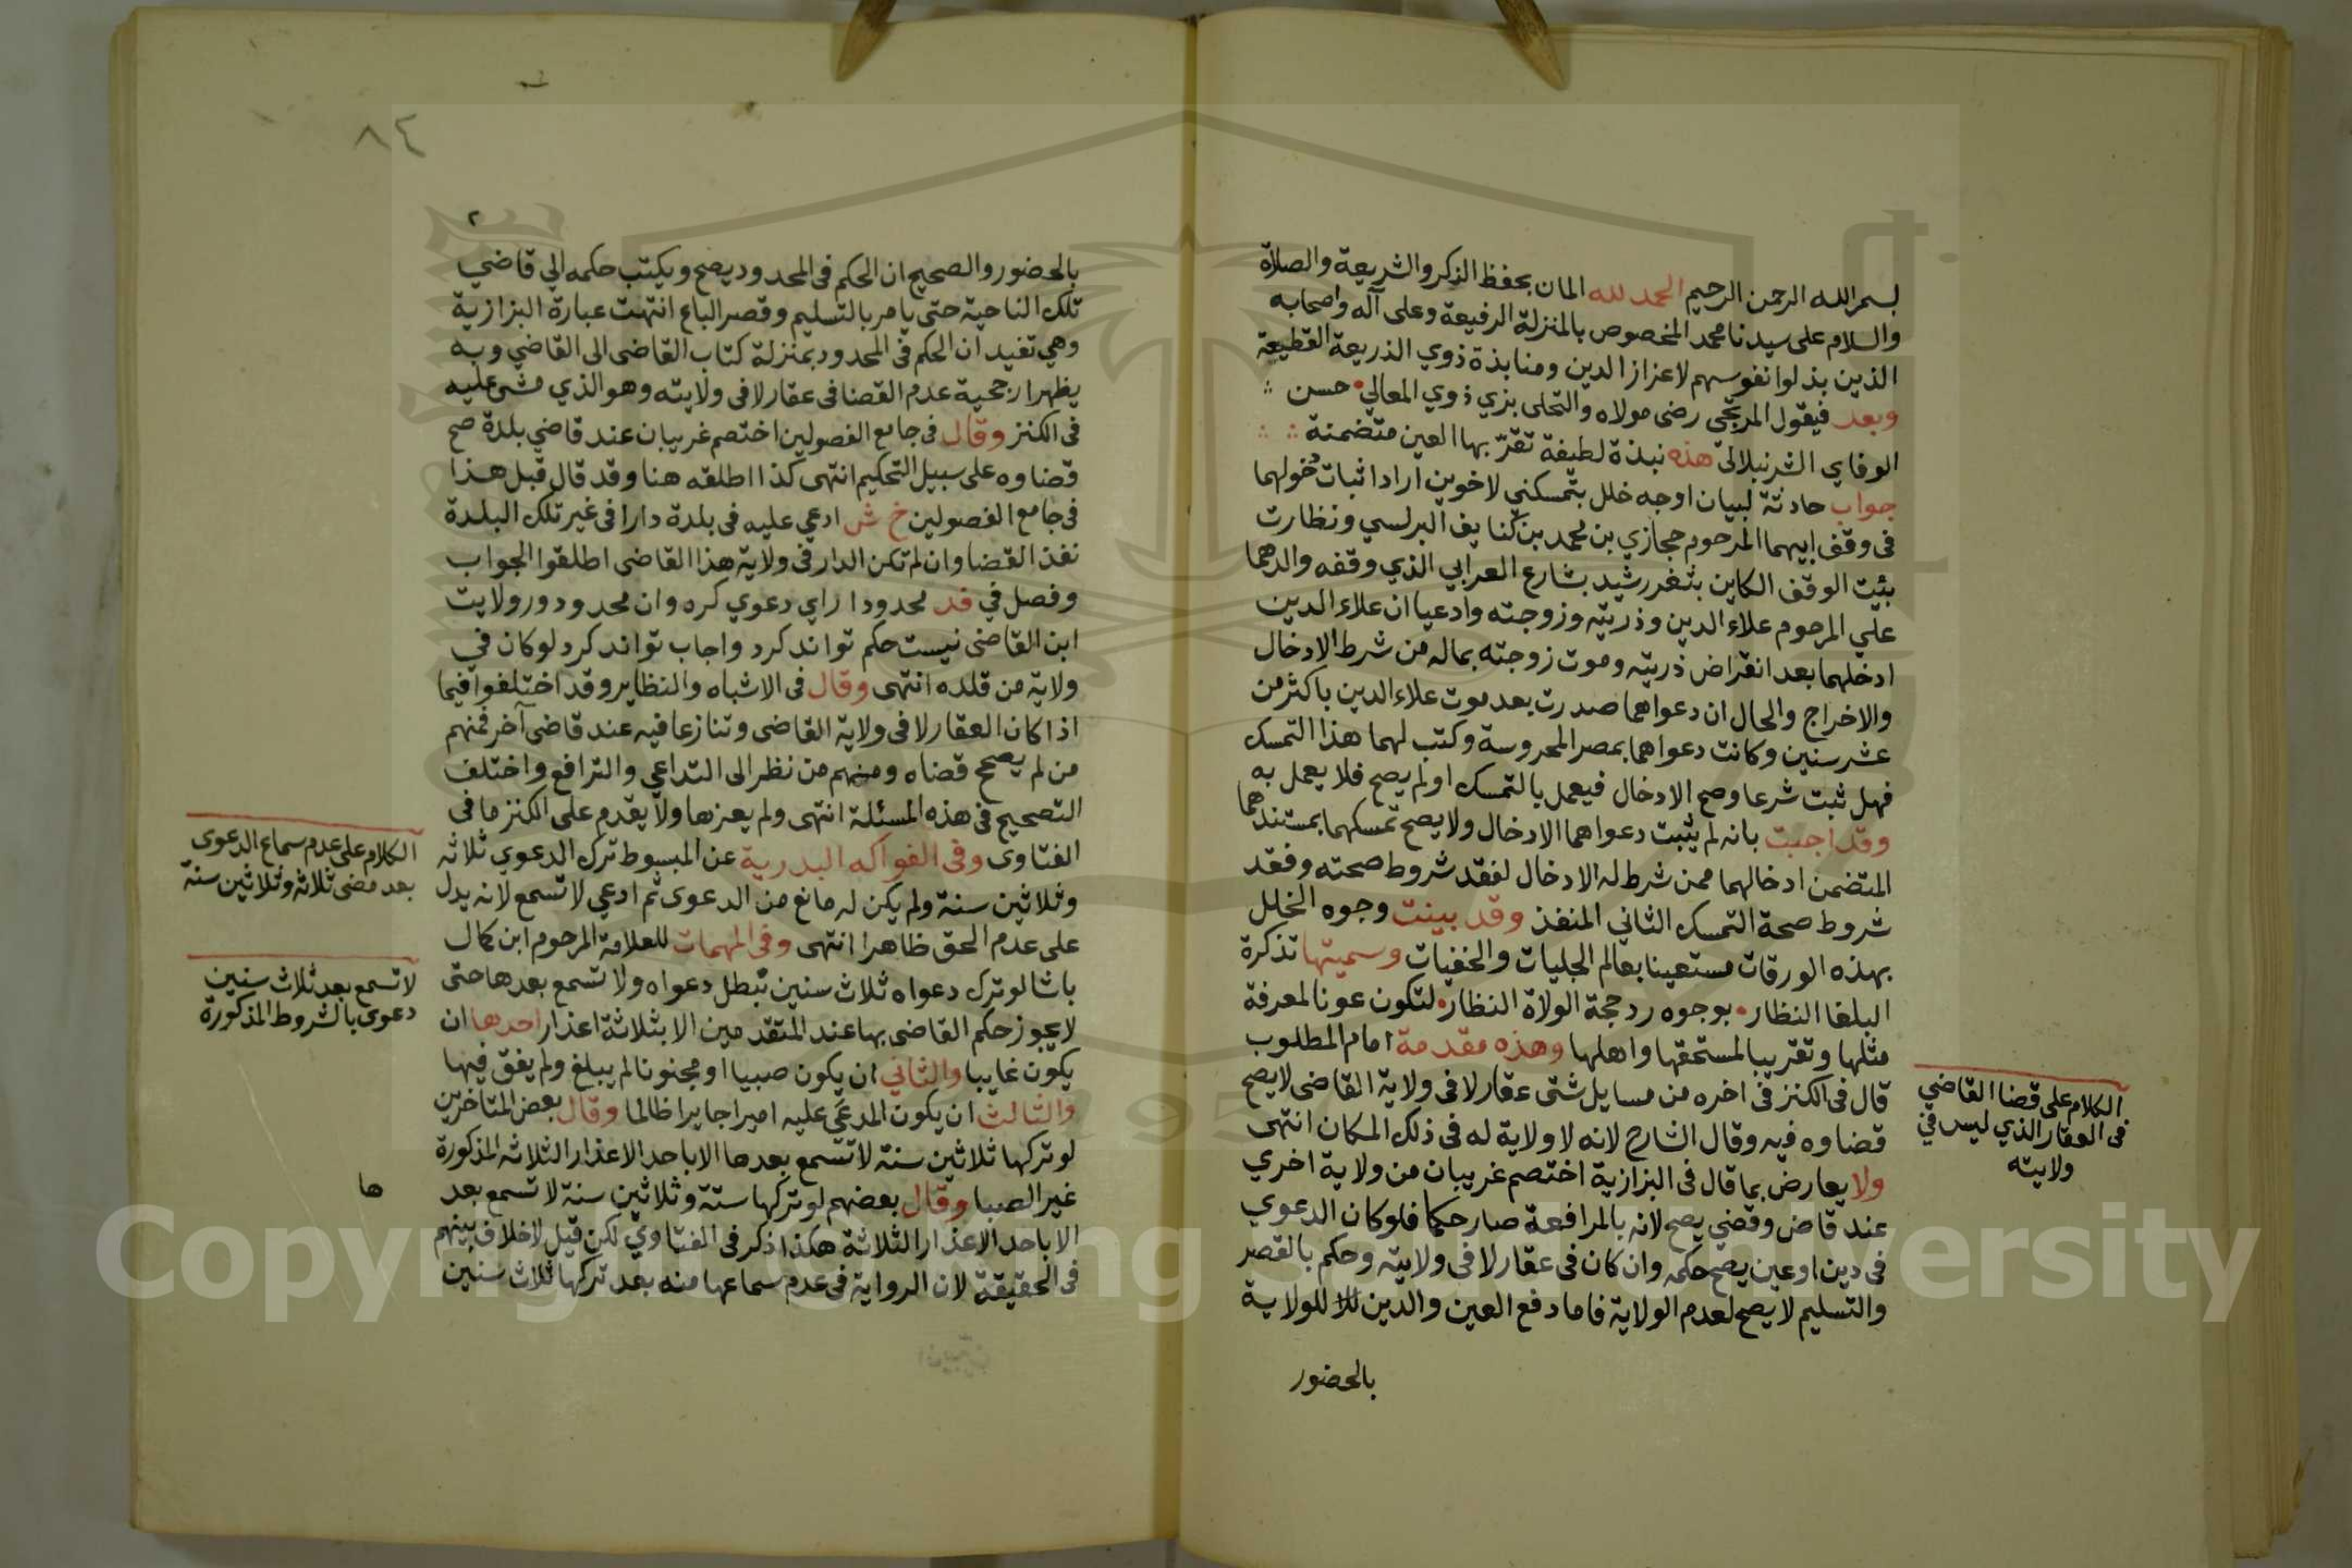 بسم الله الرحمن الرحيم الحمد لله المان بحفظ الذكر والشريعة والصلاة
والسلام على سيدنا محمد المخصوص بالمنزلة الرفيعة وعلى آله واصحابه
الذين بذلوا نفوسهم لاعزاز الدين ومنابذة ذوي الذريعة القطيعة
وبعد فيقول المرتجى رضى مولاه والتحلى بزي ذوي المعالي حسن
الوفاي الشرنبلالى هذه نبذة لطيفة تقرّ بها العين متضمنة
جواب حادثة لبيان اوجه خلل بتمسكني لاخوين ارادا ثبات دخولهما
فى وقف ابيهما المرحوم حجازي بن محمد بن كنايف البرلسي ونظارت
بثيت الوقف الكاين بثغر رشيد بشارع العرابي الذي وقفه والدهما
علي المرحوم علاء الدين وذريته وزوجته وادعيا ان علاء الدين
ادخلهما بعد انقراض ذريته وموت زوجته بماله من شرط الادخال
والاخراج والحال ان دعواهما صدرت بعد موت علاء الدين باكثر من
عشر سنين وكانت دعواهما بمصر المحروسة وكتب لهما هذا التمسك
فهل ثبت شرعا وصح الادخال فيعمل بالتمسك او لم يصح فلا يعمل به
وقد اجبت بانه لم يثبت دعواهما الادخال ولا يصح تمسكهما بمستندهما
المتضمن ادخالهما ممن شرط له الادخال لفقد شروط صحته وفقد
شروط صحة التمسك الثاني المنفذ وقد بينت وجوه الخلل
بهذه الورقات مستعينا بعالم الجليات والخفيات وسميتها تذكرة
البلغا النظار بوجوه رد حجة الولاة النظار لتكون عونا لمعرفة
مثلها وتقريبا لمستحقها واهلها وهذه مقدمة امام المطلوب
قال فى الكنز فى اخره من مسايل شتى عقار لا فى ولاية القاضى لا يصح
قضاوه فيه وقال الشارح لانه لا ولاية له فى ذلك المكان انتهى
ولا يعارض بما قال فى البزازية اختصم غريبان من ولاية اخري
عند قاض وقضي يصح لانه بالمرافعة صار حكما فلو كان الدعوي
فى دين او عين يصح حكمه وان كان فى عقار لا فى ولايته وحكم بالقصر
والتسليم لا يصح لعدم الولاية فاما دفع العين والدين للولاية
بالحضور
الكلام على قضا القاضي
فى العقار الذي ليس في
ولايته
٨٤
٢
بالحضور والصحيح ان الحكم فى المحدود يصح ويكتب حكمه الي قاضي
تلك الناحية حتى يامر بالتسليم وقصر الباع انتهت عبارة البزازية
وهي تفيد ان الحكم فى المحدود بمنزلة كتاب القاضى الى القاضي وبه
يظهر ارجحية عدم القضا فى عقار لا فى ولايته وهو الذي مشى عليه
فى الكنز وقال فى جامع الفصولين اختصم غريبان عند قاضي بلدة صح
قضاوه على سبيل التحكيم انتهى كذا اطلقه هنا وقد قال قبل هذا
فى جامع الفصولين خ ش ادعي عليه فى بلدة دارا فى غير تلك البلدة
نفذ القضا وان لم تكن الدار فى ولاية هذا القاضى اطلقوا الجواب
وفصل في فد محدودا راي دعوي كره وان محدود در ولايت
ابن القاضى نيست حكم تواند كرد واجاب تواند كرد لو كان في
ولاية من قلده انتهى وقال فى الاشباه والنظاير وقد اختلفوا فيما
اذا كان العقار لا فى ولاية القاضى وتنازعا فيه عند قاضى آخر فمنهم
من لم يصحح قضاه ومنهم من نظر الى التداعي والترافع واختلف
التصحيح فى هذه المسئلة انتهى ولم يعزها ولا يقدم على الكنز ما فى
الفتاوى وفى الفواكه البدرية عن المبسوط ترك الدعوي ثلاثه
وثلاثين سنة ولم يكن له مانع من الدعوى ثم ادعي لا تسمع لانه يدل
على عدم الحق ظاهرا انتهى وفى المهمات للعلامة المرحوم ابن كمال
باشا لو ترك دعواه ثلاث سنين تبطل دعواه ولا تسمع بعدها حتى
لا يجوز حكم القاضى بها عند المتقدمين الا بثلاثة اعذار احدها ان
يكون غايبا والثاني ان يكون صبيا او مجنونا لم يبلغ ولم يفق فيها
والثالث ان يكون المدعي عليه اميرا جايرا ظالما وقال بعض المتاخرين
لو تركها ثلاثين سنة لا تسمع بعدها الا باحد الاعذار الثلاثه المذكورة
غير الصبا وقال بعضهم لو تركها ستة وثلاثين سنة لا تسمع بعد
الا باحد الاعذار الثلاثة هكذا ذكر فى الفتاوي لكن قيل لا خلاف بينهم
فى الحقيقة لان الرواية فى عدم سماعها منه بعد تركها ثلاث سنين
الكلام على عدم سماع الدعوى
بعد مضى ثلاثه وثلاثين سنة
لا تسمع بعد ثلاث سنين
دعوى بالشروط المذكورة
ها
Copyright © King Saud University